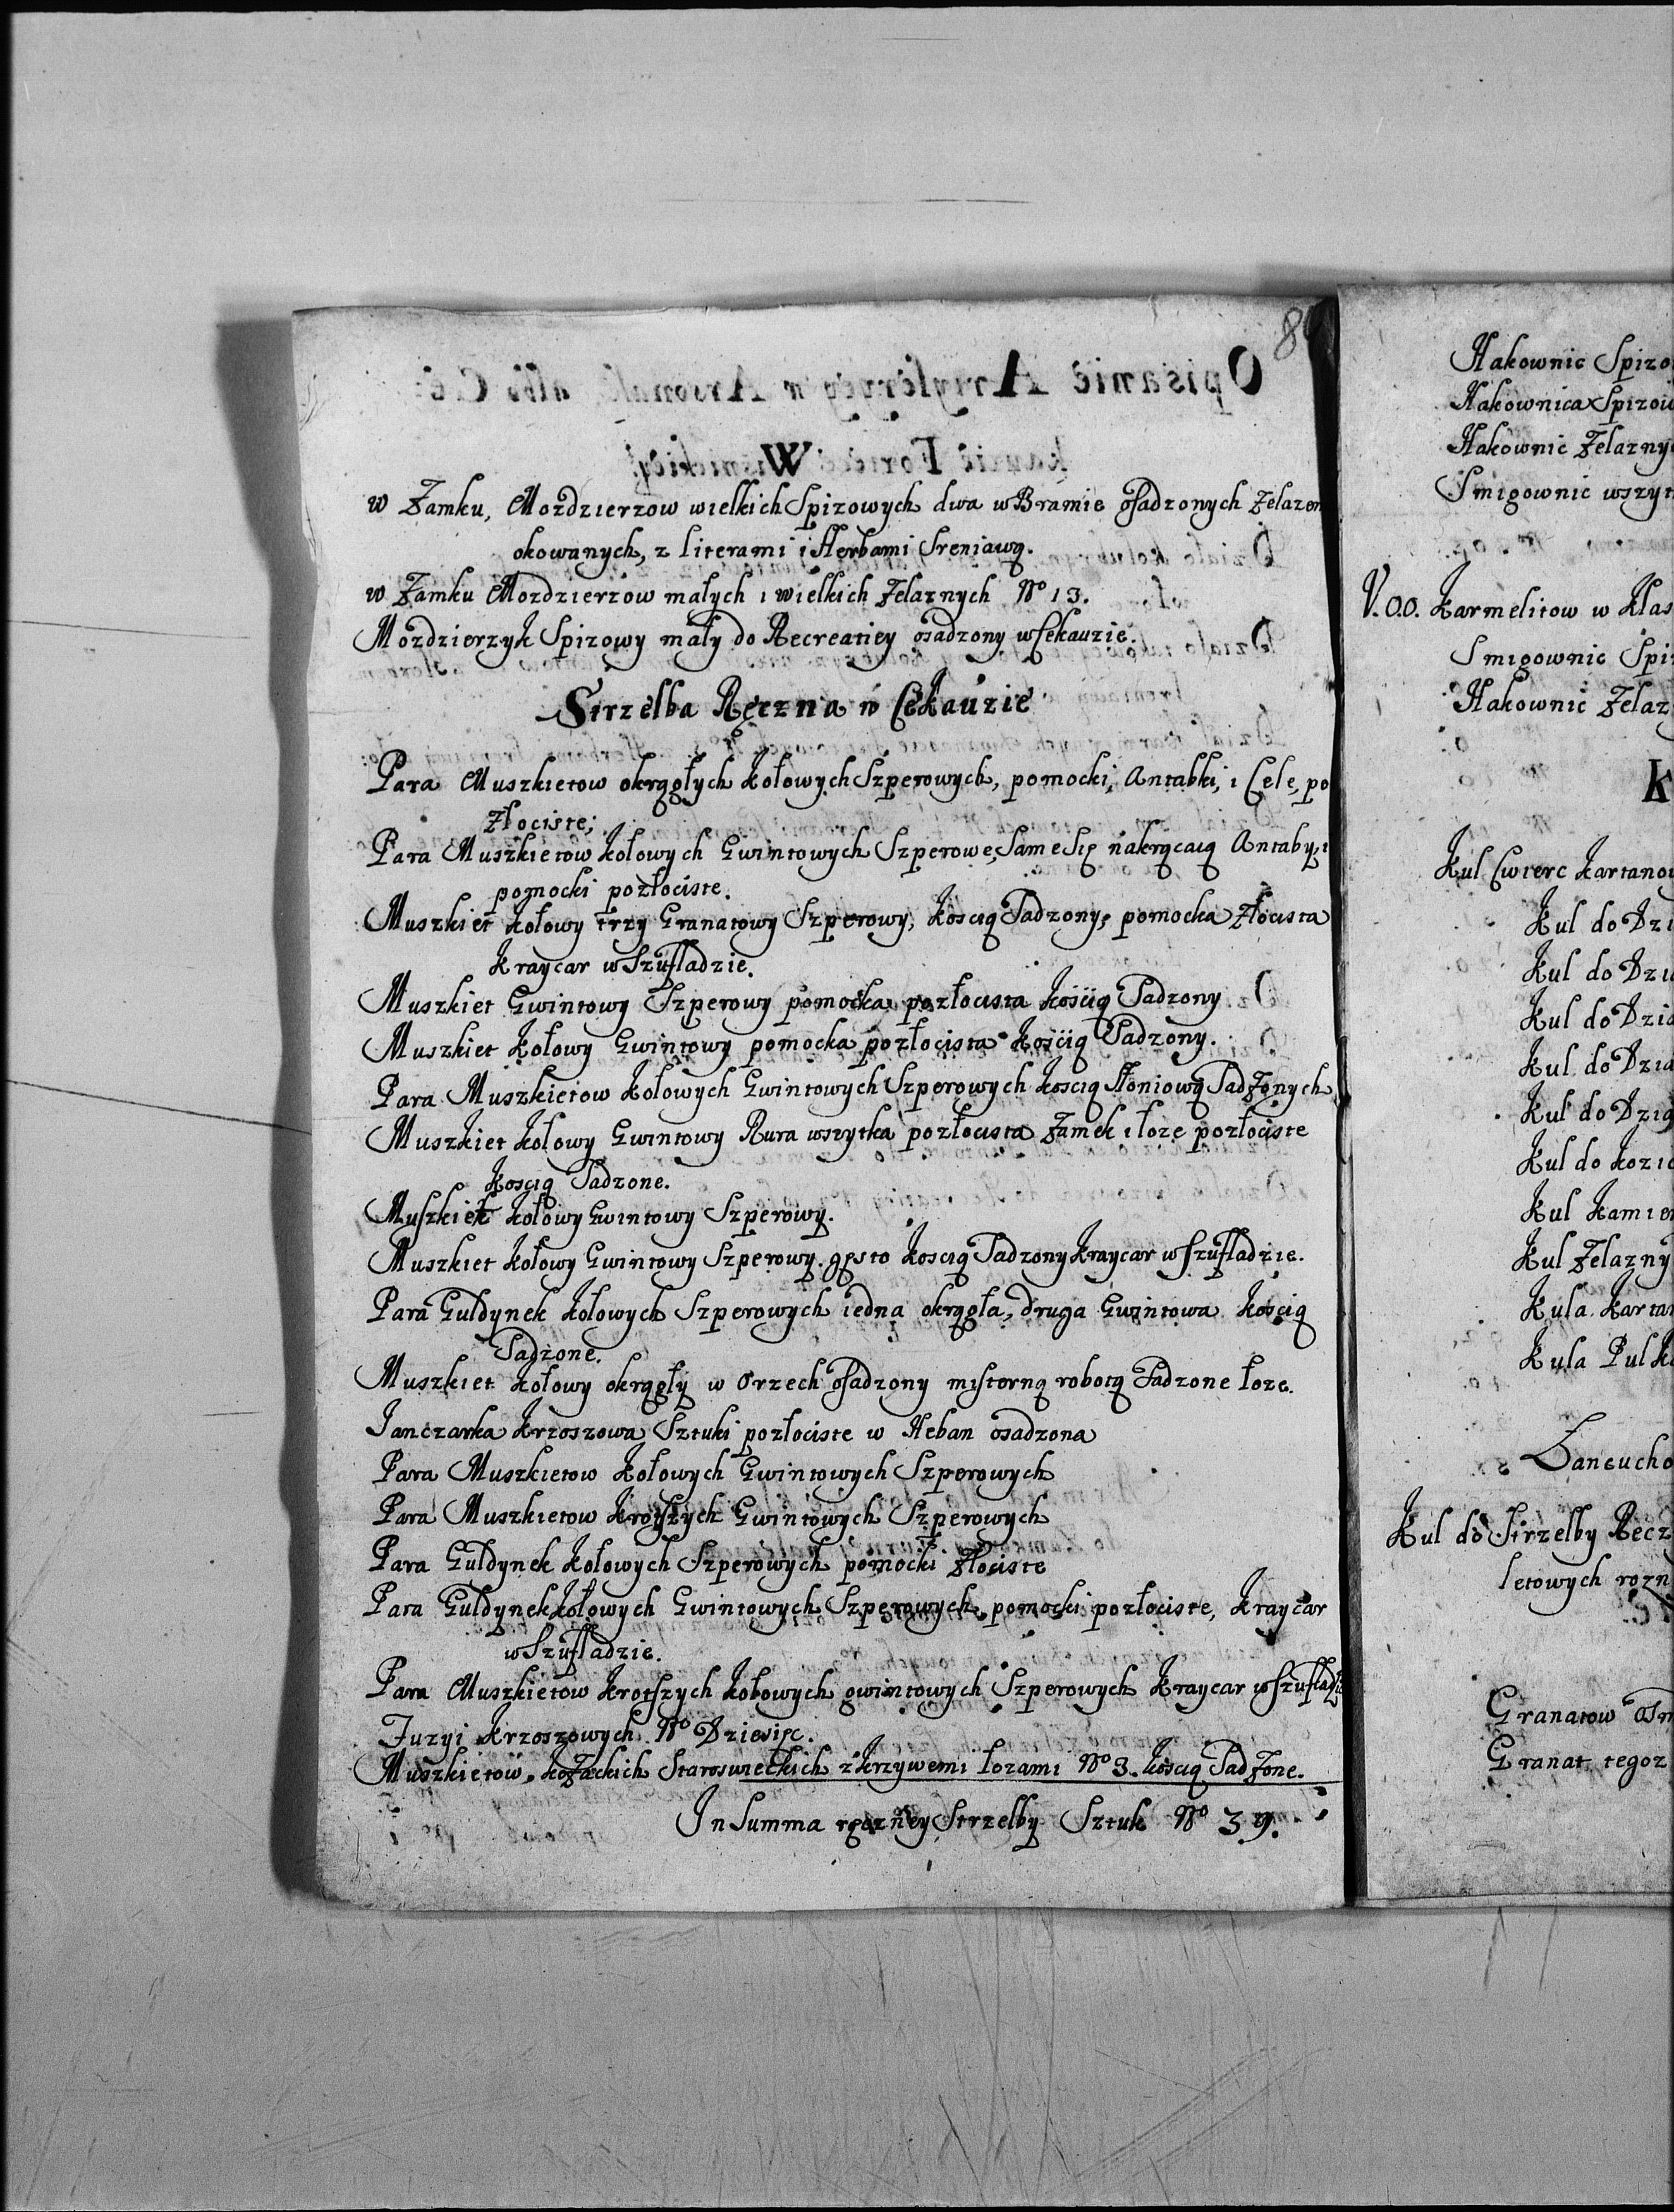 w Zamku, Mozdzierzow wielkich Spizowych dwa w Bramie osadzonych Zelazem
okowanych, z literami i Herbami Sreniawą.
w Zamku Mozdzierzow małych i wielkich Zelaznych No 13.
Mozdzierzyk Spizowy mały do Recreatiey osadzony w Cekauzie.
Strzelba Ręczna w Cekauzie
Para Muszkietow okrągłych kołowych Szperowych, pomocki, Antabki, i Cele, po
złociste;
Para Muszkietow kołowych Gwintowych Szperowe, Same Się nakrącaią Antaby, i
pomocki pozłociste.
Muszkiet kołowy trzy Granatowy Szperowy, koscią Sadzony, pomocka złocista
kraycar w Szufladzie.
Muszkiet Gwintowy Szperowy pomocka pozłocista kością Sadzony
Muszkiet kołowy Gwintowy pomocka pozłocista kością Sadzony.
Para Muszkietow kołowych Gwintowych Szperowych koscią Słoniową Sadzonych
Muszkiet kołowy Gwintowy Rura wszytka pozłocista Zamek i łoze pozłociste
koscią Sadzone.
Muszkiet kołowy Gwintowy Szperowy.
Muszkiet kołowy Gwintowy Szperowy. gęsto koscią Sadzony kraycar w szufladzie.
Para Guldynek kołowych Szperowych iedna okrągła, druga Gwintowa kością
Sadzone.
Muszkiet kołowy okrągły w Orzech osadzony misterną robotą Sadzone łoze.
Janczarka krzoszowa Sztuki pozłociste w Heban osadzona
Para Muszkietow kołowych Gwintowych Szperowych
Para Muszkietow Gwintowych Szperowych
Para Guldynek kołowych Szperowych pomocki złociste
Para Guldynek kołowych Gwintowych Szperowych pomocki pozłociste, kraycar
w Szufladzie.
Para Muszkietow krotszych kołowych gwintowych Szperowych kraycar w szufladzie
Fuzyi krzoszowych No Dziesięc.
Muszkietow kozackich Staroswieckich z krzywemi łozami No 3. koscią Sadzone.
In Summa ręczney Strzelby Sztuk No 39.
Hakownic
Hakownica
Hakownic
Smigownic
V.OO. Karmelitow w
Smigownic
Hakownic
Kul Cwierc
Kul do
Kul do
Kul do
Kul do
Kul do
Kul do
Kul
Kul
Kula
Kula
Kul do Strzelby
letowych
Granatow
Granat tegoz